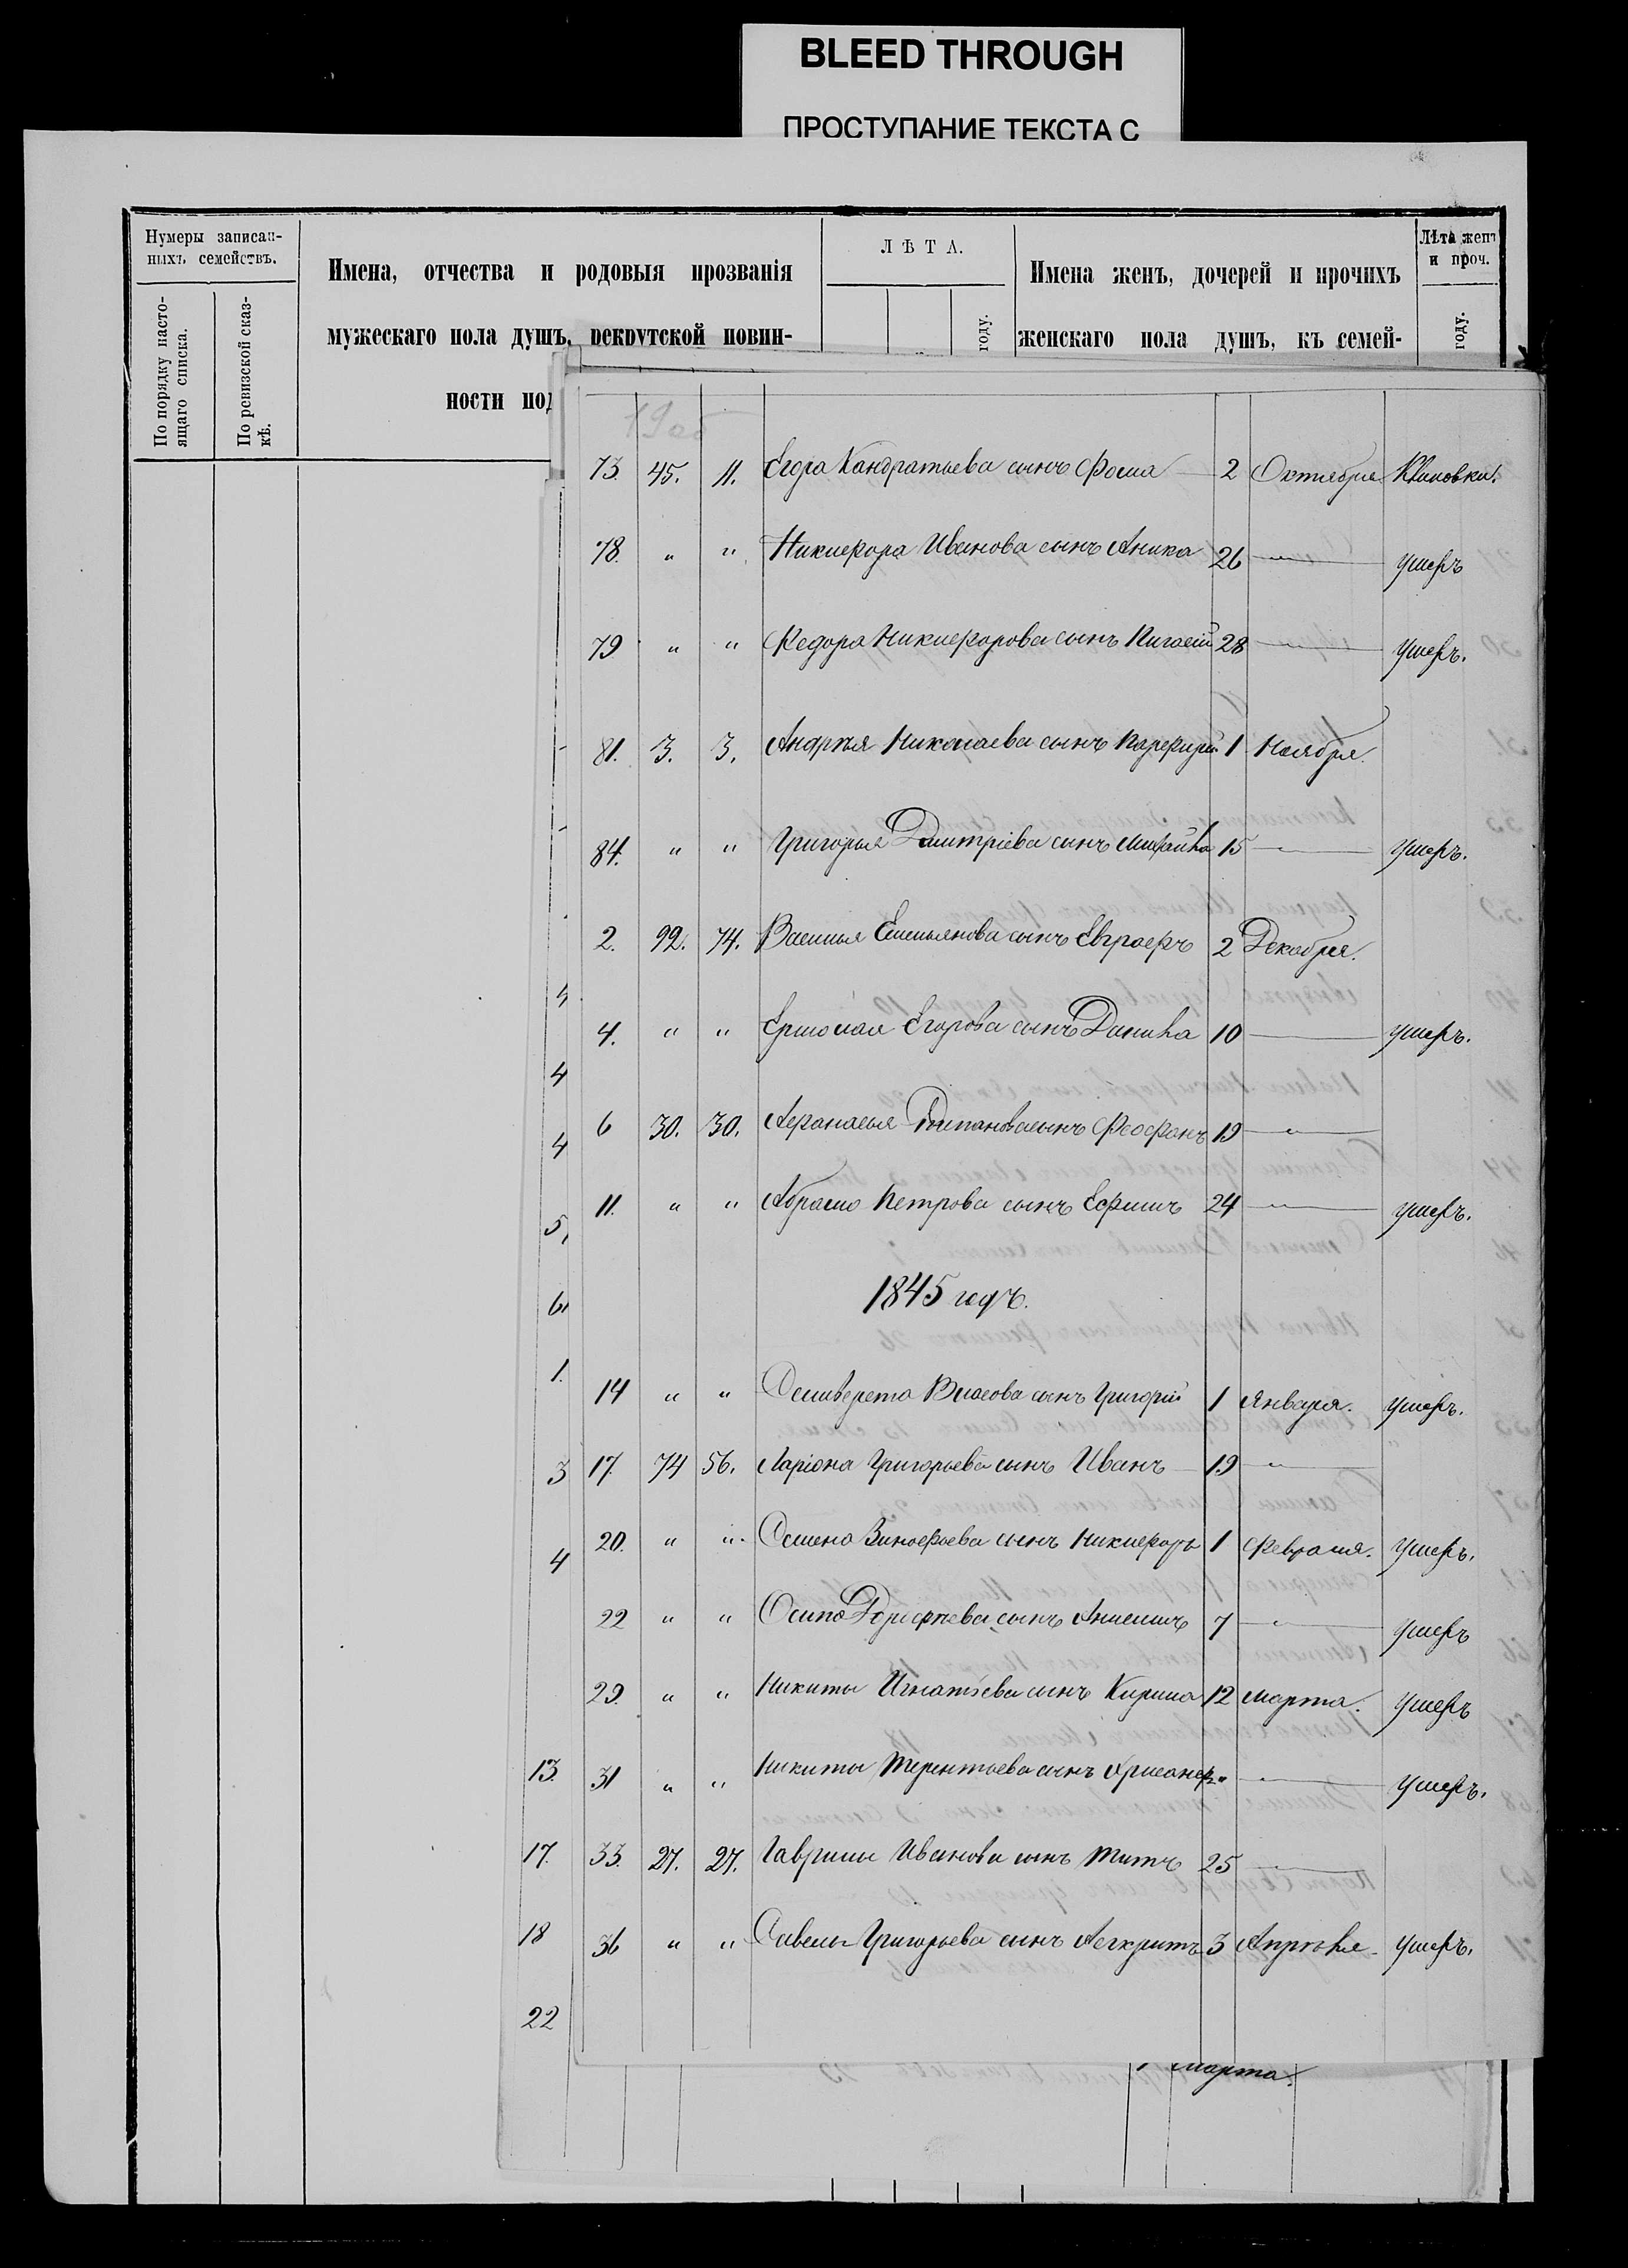 BLEED THROUGH
ПРОСТУПАНИЕ ТЕКСТА С
Нумеры записан-
ныхъ семействъ.
По порядку насто-
ящаго списка.
По ревизской сказ-
кѣ.
Имена, отчества и родовыя прозванія
мужескаго пола душъ, рекрутской повин-
ности под
ЛѢТА.
году.
Имена женъ, дочерей и прочихъ
женскаго пола душъ, къ семей-
Лѣта женъ
и проч.
году.
19 об
73. 45. 11. Егора Кандратьева сынъ Фома 2 Октября
78. " " Никифора Иванова сынъ Аника 26 " умеръ
79 " " Федора Никифорова сынъ 28 " умеръ.
81. 3. 3. Андрѣя Николаева сынъ Парфирій 1 Ноября.
84. " " Григорья Дмитріева сынъ Михайла 15 " умеръ.
2. 92. 74. Василья Емельянова сынъ Евграфъ 2 Декабря.
4. " " Ермолая Егорова сынъ Данила 10 умеръ.
6 30. 30. Афанасья сынъ Феофанъ 19 "
11. " " Абрама Петрова сынъ Ефимъ 24 " умеръ.
1845 годъ.
14 " " Селиверста Власова сынъ Григорій 1 Января. умеръ.
17. 74 56. Ларіона Григорьева сынъ Иванъ 19 "
20. " " Семена Зиновьева сынъ Никифоръ 1 Февраля. умеръ.
22 " " Осипа Дорофѣева сынъ 7 " умеръ
29. " " Никиты Игнатьева сынъ Кирила 12 Марта. умеръ
31 " " Никиты Терентьева сынъ Хрисанфъ " " умеръ.
33. 27. 27. Гаврилы Иванова сынъ Титъ 25 "
36 " " Савелья Григорьева сынъ 3 Апрѣля умеръ.
4
4
4
5,
6,
1.
3
4
13.
17.
18
22
марта.